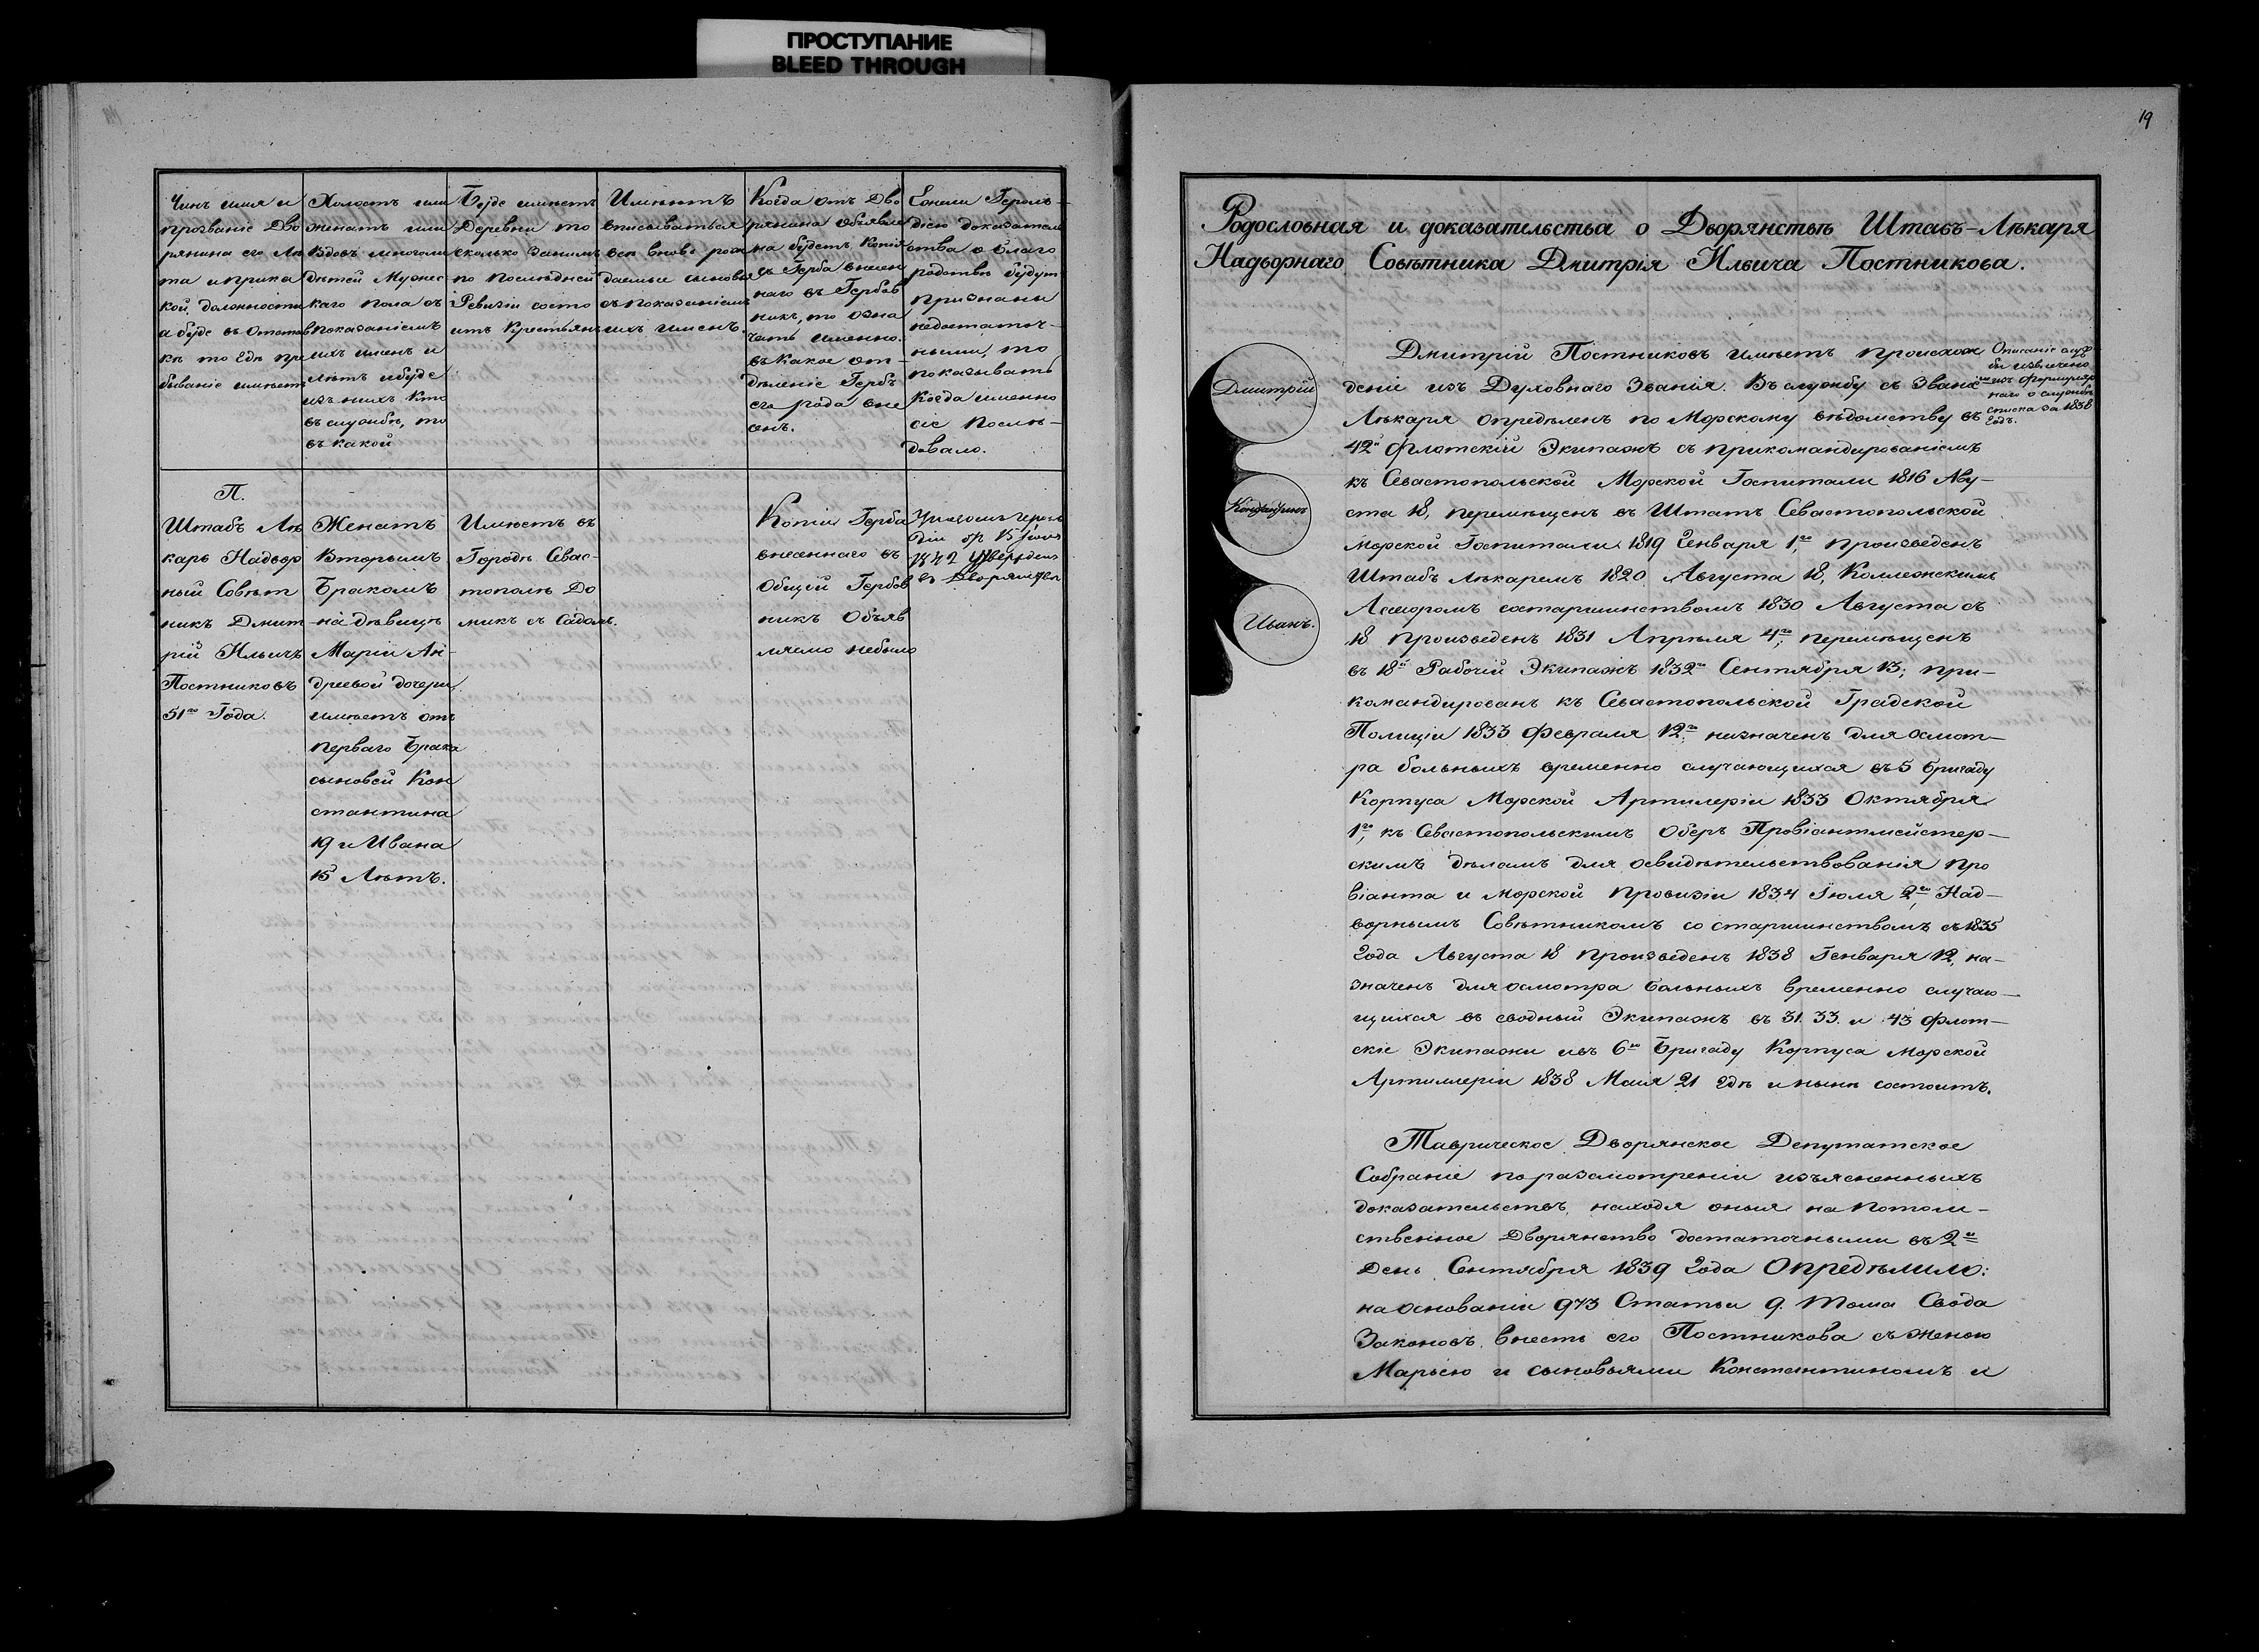 ПРОСТУПАНИЕ
BLEED THROUGH
19
Чинъ имя и
прозваніе Дво
рянина его Лѣ
та и прика
кой должности
а буде въ Отстав
кѣ то гдѣ пре
бываніе имѣетъ
Холостъ или
женатъ или
Вдовъ многоли
дѣтей Мужес
каго пола съ
показаніемъ
ихъ именъ и
лѣтъ и буде
изъ нихъ кто
въ службѣ, то
въ какой
Буде имѣетъ
Деревни то
сколько за нимъ
по послѣдней
Ревизіи состо
итъ Крестьянъ
Имѣютъ
вписываться
всѣ вновь рож
даемые сыновья
съ показаніемъ
ихъ именъ.
Когда отъ Дво
рянина объявле
на будетъ, Копія
съ Герба внесен
наго въ Гербов
никъ, то озна
чать именно
въ какое от-
дѣленіе Гербъ
его рода вне
сенъ.
Ежели Героль-
діею доказатель
ства о благо
родствѣ будут
признаны
недостаточ-
ными, то
показывать
когда именно
сіе послѣ-
довало.
П.
Штабъ Лѣ
карь Надвор
ный Совѣт
никъ Дмит
рій Ильичъ
Постниковъ
51го Года.
Женатъ
Вторымъ
Бракомъ
на дѣвицѣ
Маріи Ан-
дреевой дочери,
имѣетъ отъ
перваго Брака
сыновей Кон
стантина
19 и Ивана
15 Лѣтъ.
Имѣетъ въ
Городѣ Севас-
тополѣ До
микъ съ Садомъ.
Копіи Герба
внесеннаго въ
Общій Гербов
никъ Объяв
ляемо небыло
Указомъ Героль
діи от 15
1842 утвержденъ
въ Дворянствѣ
Родословная и доказательства о Дворянствѣ Штабъ-Лѣкаря
Надворнаго Совѣтника Дмитрія Ильича Постникова.
Дмитрій
Константинъ
Иванъ.
Описаніе служ
бы извлечено
изъ формуляр
наго о службѣ
списка за 1838
годъ.
Дмитрій Постниковъ имѣетъ происхож
деніе изъ Духовнаго Званія. Въ службу съ Званія
Лѣкаря опредѣленъ по Морскому вѣдомству въ
42й Флотскій Экипажъ съ прикомандированіемъ
къ Севастопольской Морской Госпитали 1816 Авгу-
ста 18, перемѣщенъ въ Штатъ Севастопольской
Морской Госпитали 1819 Генваря 1го, произведенъ
Штабъ Лѣкаремъ 1820 Августа 18, Коллежскимъ
Асессоромъ состаршинствомъ 1830 Августа съ
18 произведенъ 1831 Апрѣля 4го; перемѣщенъ
въ 18й Рабочій Экипажъ 1832го Сентября 13; при-
командированъ къ Севастопольской Градской
Полиціи 1833 Февраля 12го; назначенъ для осмот-
ра больныхъ временно случающихся въ 5 бригаду
Корпуса Морской Артилеріи 1833 Октября
1го, къ Севастопольскимъ Оберъ Провіантмейстер-
скимъ дѣламъ для освидѣтельствованія про
віанта и Морской провизіи 1834 Іюля 2го, Над-
ворнымъ Совѣтникомъ со старшинствомъ съ 1835
года Августа 18 произведенъ 1838 Генваря 12, на-
значенъ для осмотра больныхъ временно случаю-
щихся въ сводный Экипажъ въ 31. 33. и 43 Флот-
скіе Экипажи и въ 6ю Бригаду Корпуса Морской
Артиллеріи 1838 Маія 21 гдѣ и нынѣ состоитъ.
Таврическое Дворянское Депутатское
Собраніе по разсмотреніи изъясненныхъ
доказательствъ, находя оныя на потом-
ственное Дворянство достаточными въ 2й
день Сентября 1839 года Опредѣлило:
на основаніи 973 Статьи 9. тома Свода
Законовъ, внесть его Постникова съ женою
Марьею и сыновьями Константиномъ и